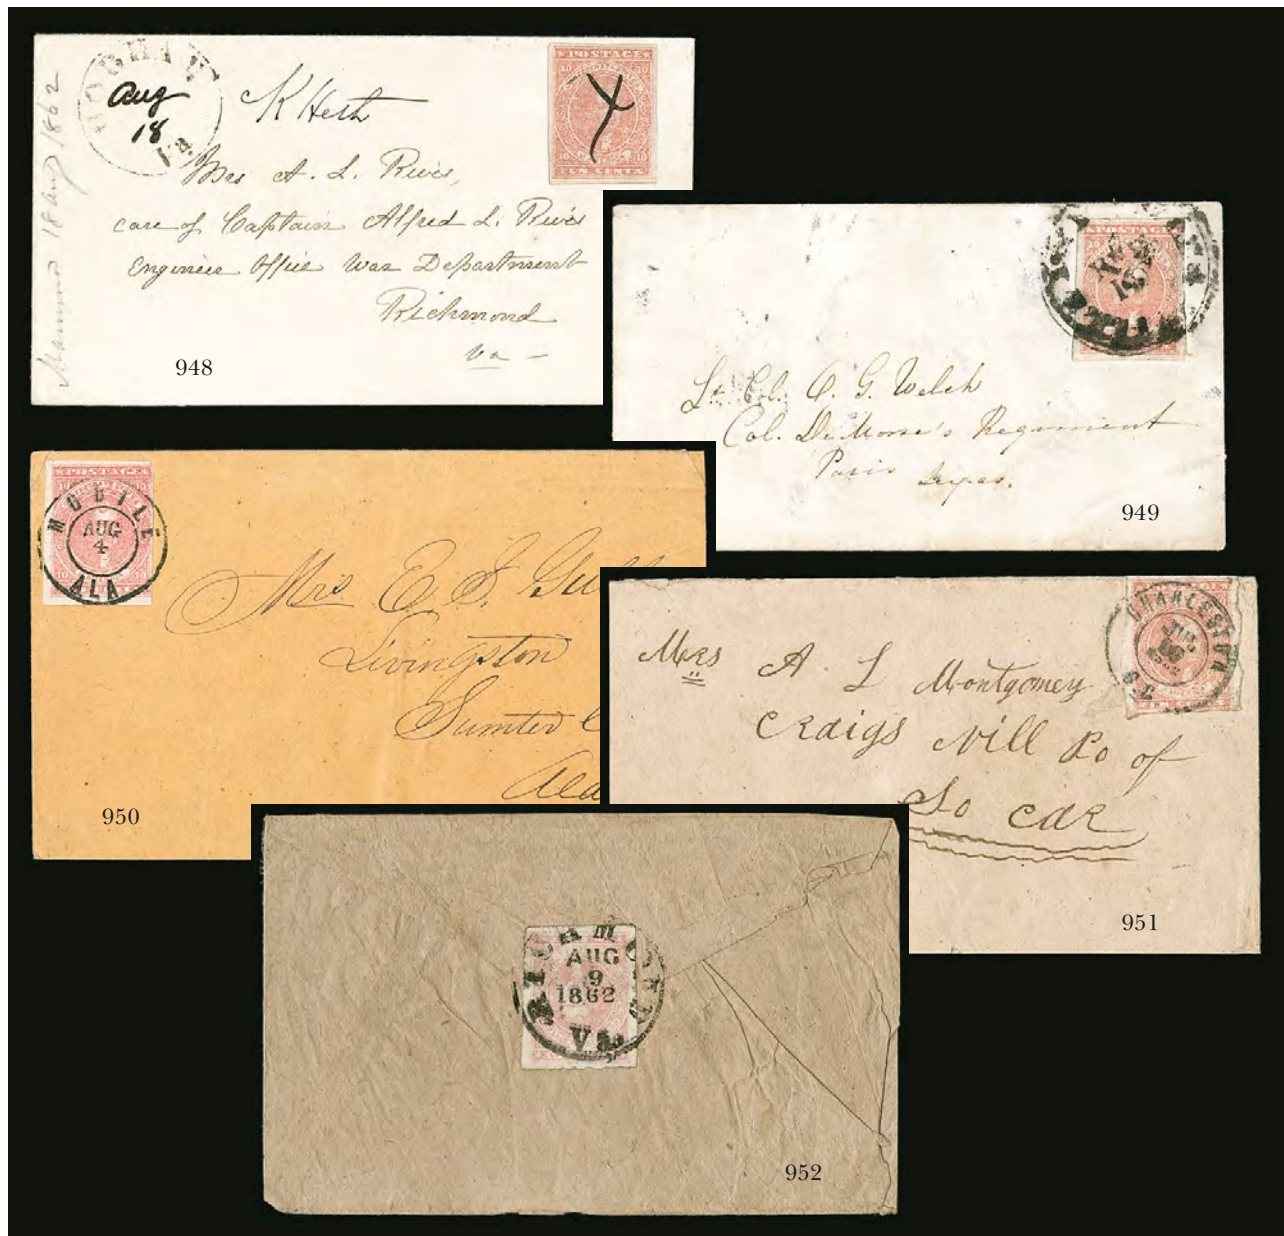 Aug
18
Va.
K Hesh
POSTAGE
TEN CENTS
18 Aug 1862
Mrs A. L. Rives,
care of Captain Alfred L. Rives
Engineer Office War Department
Richmond
Va -
948
POSTAGE
Lt. Col. O. G. Welch
Col. De Morse's Regiment
Paris Texas.
949
POSTAGE
MOBILE
AUG
4
ALA
Mrs E. S.
Livingston
Sumter
950
CHARLESTON
S.C
Mrs A L Montgomey
Craigs Mill Po of
So Car
951
RICHMOND
AUG
9
1862
Va.
952